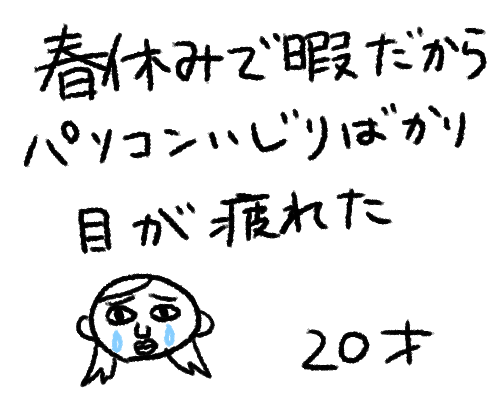 春休みで暇だから
パソコンいじりばかり
目が疲れた
20才